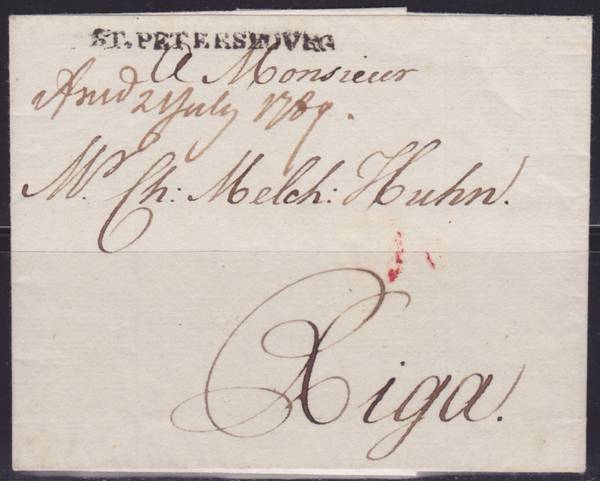 ST. PETERSBOVRG
A Monsieur
Arrivd 2 July 1789.
Mr. Ch: Melch: Huhn.
Riga.